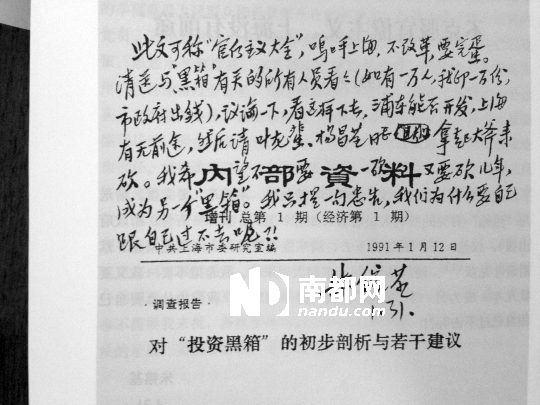 此文可称“官僚主义大全”，呜呼上海，不改革，要完蛋。
请送与“黑箱”有关的所有人员看看（如有一万人，我印一万份，
市政府出钱），议论一下，看这样下去，浦东能否开发，上海
有无前途，然后请叶龙蜚、杨昌基同志拿起大斧来
砍。我希望不要一砍又要砍几年，
内部資料
成为另一个“黑箱”。我只提一句患告，我们为什么要自己
增刊 总第 1 期（经济第 1 期）
跟自己过不去呢？！
中共上海市委研究室编 1991 年 1 月 12 日
朱镕基
1.31.
N 南都网
nandu.com
·调查报告·
对“投资黑箱”的初步剖析与若干建议